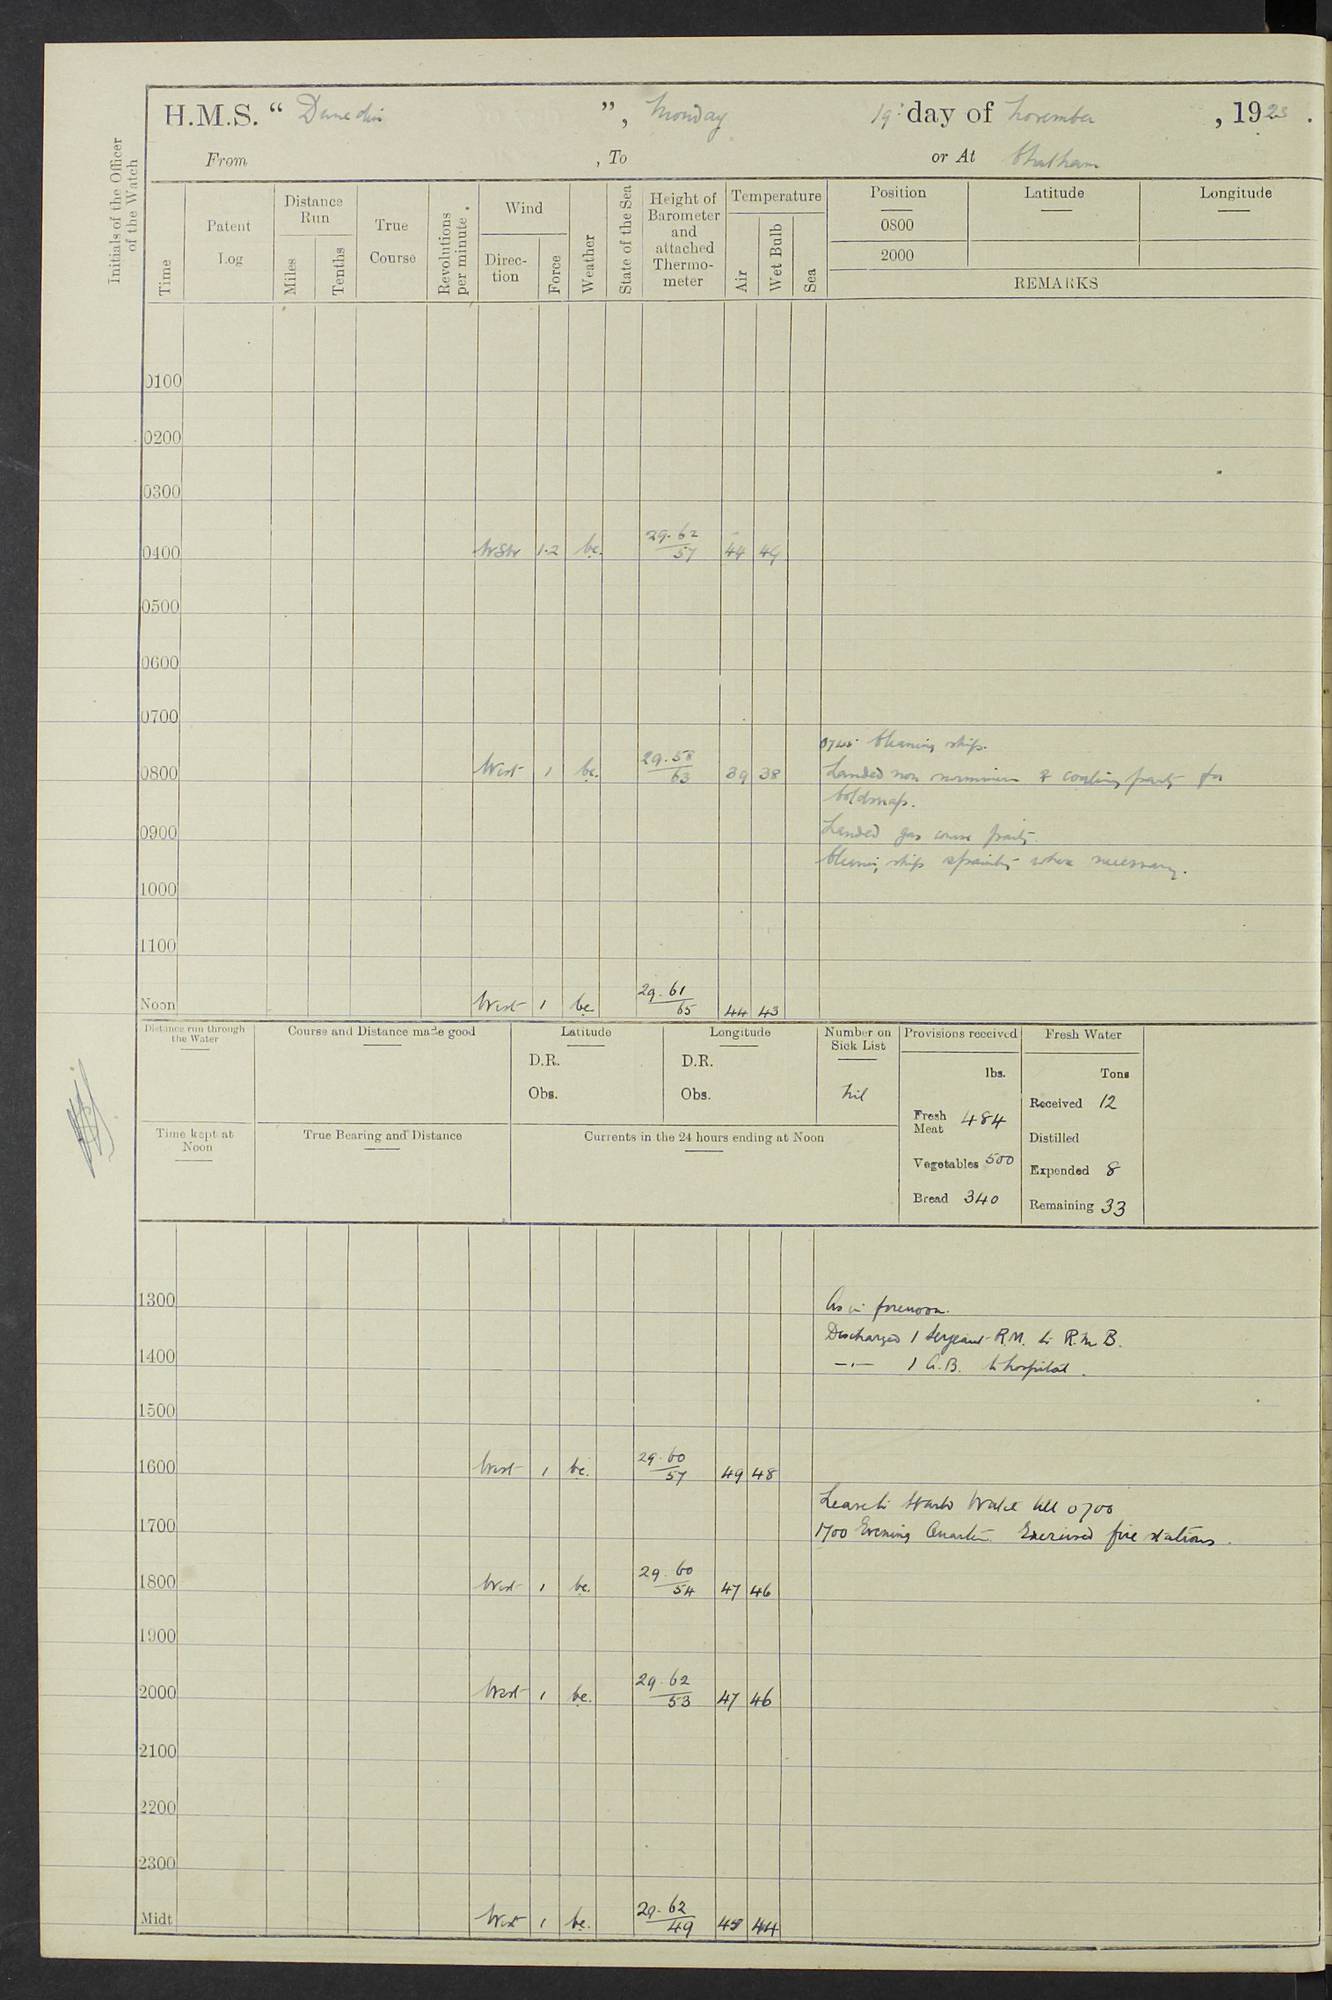 H.M.S. “ Dunedin ”, Monday 19th day of November, 1923.
From , To or At Chatham
Initials of the Officer of the Watch
Time
Patent Log
Distance Run
Miles
Tenths
True Course
Revolutions per minute.
Wind
Direction
Force
Weather
State of the Sea
Height of Barometer and attached Thermometer
Temperature
Air
Wet Bulb
Sea
Position
0800
2000
Latitude
Longitude
REMARKS
0100
0200
0300
0400 WSW 1.2 bc. 29.62 57 44
0500
0600
0700
0745 Cleaning ship.
0800 West 1 bc. 29.58 63 39 38 Landed non swimmers & coaling party for
Landed gas course party.
0900
Cleaning ship & painting where necessary.
1000
1100
Noon West 1 bc 29.61 65 44 43
Distance run through the Water
Course and Distance made good
Latitude
D.R.
Obs.
Longitude
D.R.
Obs.
Number on Sick List
Nil
Provisions received
lbs.
Fresh Meat 484
Vegetables 500
Bread 340
Fresh Water
Tons
Received 12
Distilled
Expended 8
Remaining 33
Time kept at Noon
True Bearing and Distance
Currents in the 24 hours ending at Noon
1300 As in forenoon.
Discharged 1 Sergeant R.M. to R.M.B.
1400 —"— 1 A.B. to hospital.
1500
1600 West 1 bc. 29.60 57 49 48
Leave to Starbd Watch till 0700
1700 1700 Evening Quarters. Exercised fire stations.
1800 West 1 bc. 29.60 54 47 46
1900
2000 West 1 bc. 29.62 53 47 46
2100
2200
2300
Midt West 1 bc. 29.62 49 45 44